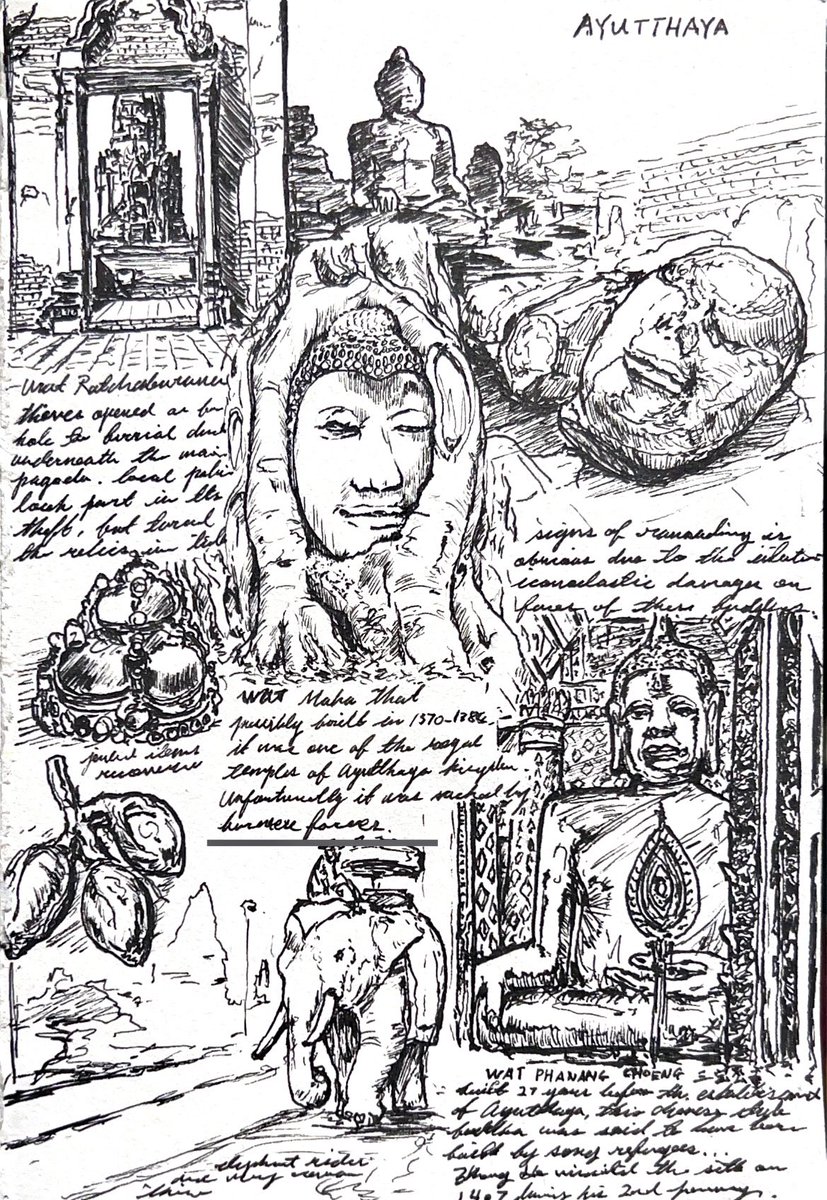 AYUTTHAYA
Wat Ratchaburana
thieves opened a
hole to burrial
underneath the main
pagoda. Local
took part in the
theft, but
the relics in
signs of ransacking is
obvious due to the
iconoclastic damages on
faces of these buddhas.
WAT Maha that
possibly built in 1370-1386
it was one of the royal
temples of Ayutthaya
Unfortunelly it was sacked by
burmese forces.
jeweled items
recovered
WAT PHANANG CHOENG
built 27 years before the
of Ayutthaya, this chinese style
buddha was said to have been
built by song refugees...
Zheng He the site on
1407 his 2nd
elephant rides
are very